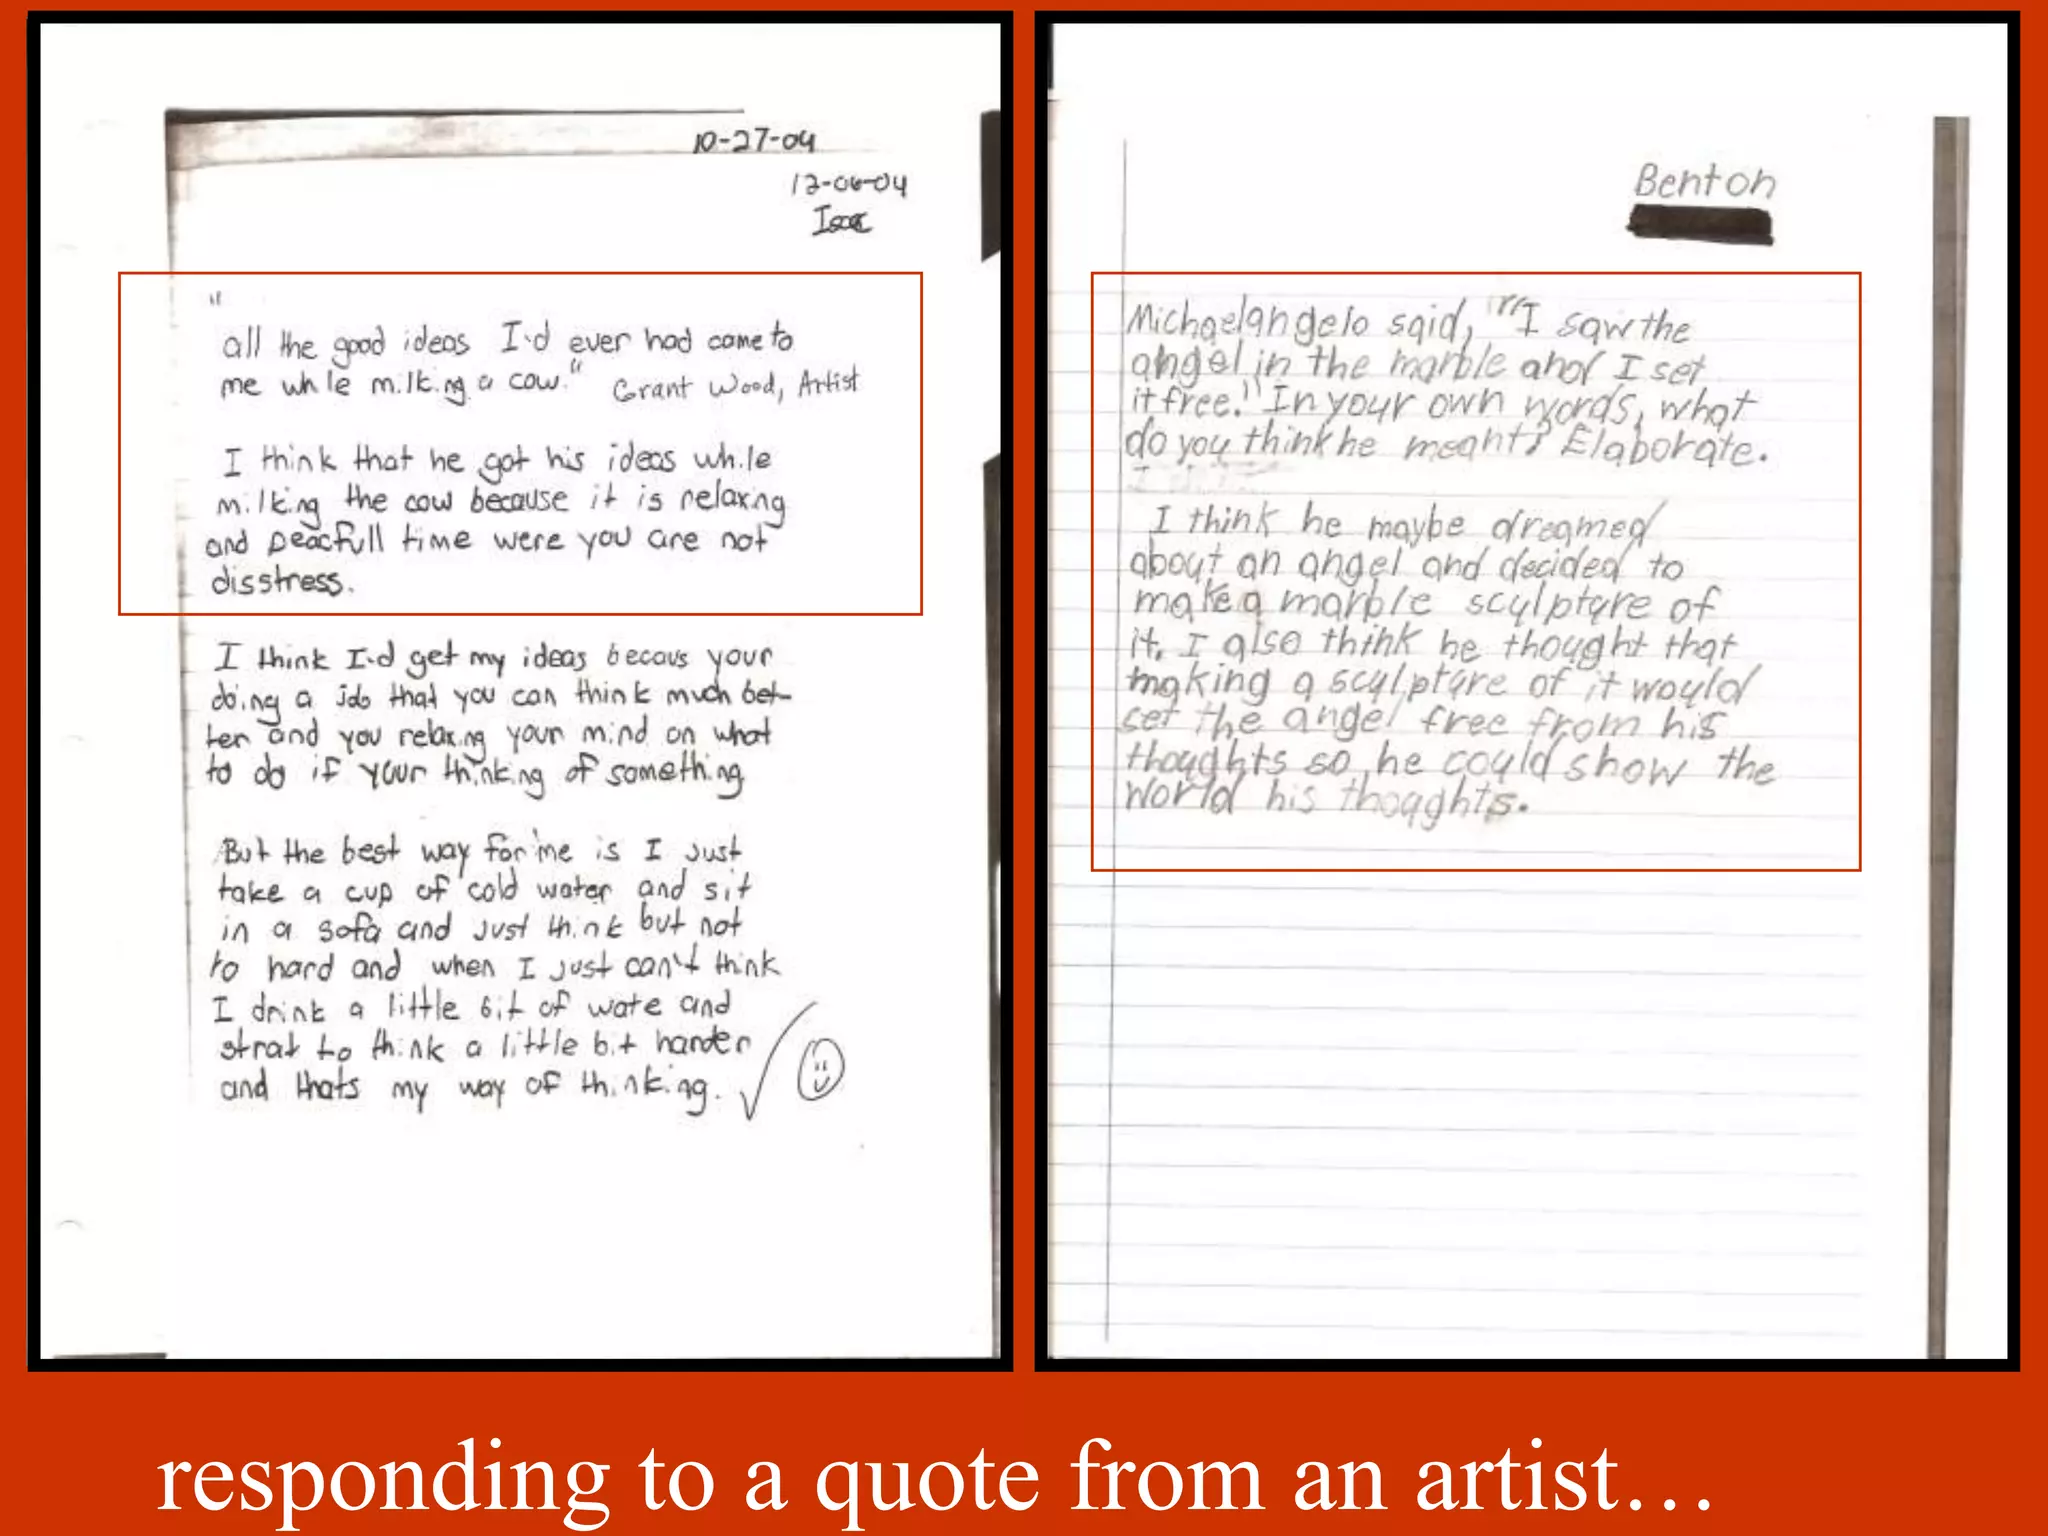 10-27-04
12-06-04
Isaac
"
all the good ideas I'd ever had came to
me while milking a cow." Grant Wood, Artist
I think that he got his ideas while
milking the cow because it is relaxing
and peacfull time were you are not
disstress.
I think I'd get my ideas becaus your
doing a job that you can think much bet-
ter and you relaxing your mind on what
to do if your thinking of something
But the best way for me is I just
take a cup of cold water and sit
in a sofa and just think but not
to hard and when I just can't think
I drink a little bit of wate and
strat to think a little bit harder
and thats my way of thinking.
Benton
Michaelangelo said, "I saw the
angel in the marble and I set
it free." In your own words, what
do you think he meant? Elaborate.
I think he maybe dreamed
about an angel and decided to
make a marble sculpture of
it. I also think he thought that
making a sculpture of it would
set the angel free from his
thoughts so he could show the
world his thoughts.
responding to a quote from an artist…